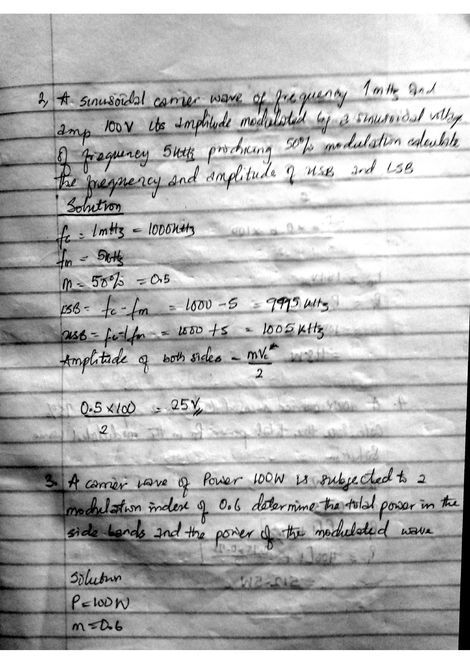 2, A sinusoidal carrier wave of frequency 1mHz and
amp 100V its amplitude modulated by a sinusoidal voltage
of frequency 5kHz producing 50% modulation calculate
the frequency and amplitude of USB and LSB
Solution
fc = 1mHz = 1000kHz
fm = 5kHz
m = 50% = 0.5
LSB = fc - fm = 1000 - 5 = 9995 kHz
USB = fc + fm = 1000 + 5 = 1005 kHz
Amplitude of both sides = mVc
2
0.5 x 100 = 25V
2
3. A carrier wave of Power 100W is subjected to a
modulation index of 0.6 determine the total power in the
side bands and the power of the modulated wave
Solution
P = 100W
m = 0.6